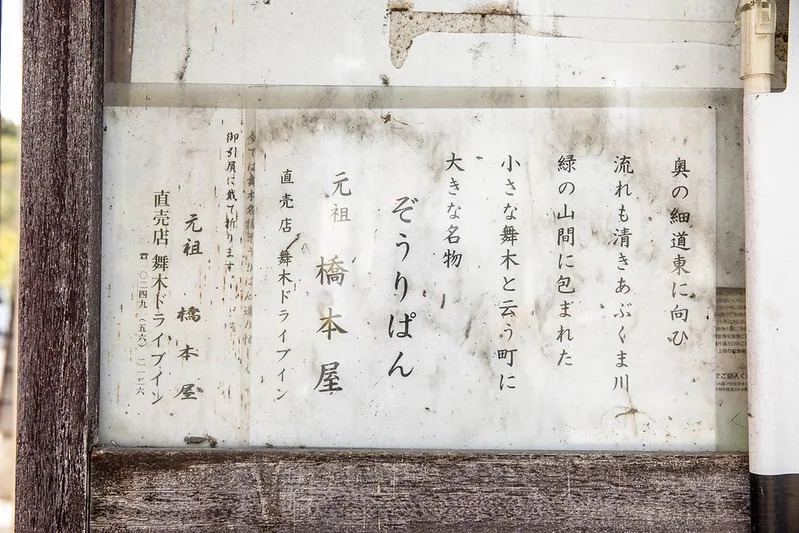 奥の細道東に向ひ
流れも清きあぶくま川
緑の山間に包まれた
小さな舞木と云う町に
大きな名物
ぞうりぱん
元祖 橋本屋
直売店 舞木ドライブイン
御引屓に戴て折ります。
元祖 橋本屋
直売店 舞木ドライブイン
☎ 〇二四九（五六）二一二六